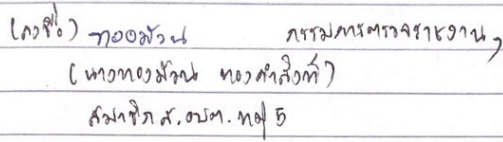 (ลงชื่อ) ทองม้วน กรรมการตรวจรายงาน,
(นางทองม้วน ทองคำสิงห์)
สมาชิก ส.อบต. หมู่ 5